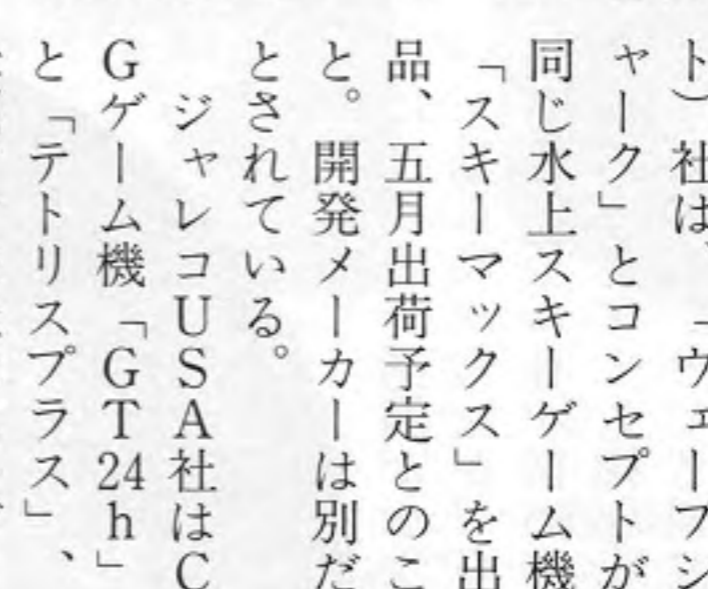 ト）社は、「ウェーブシ
ャーク」とコンセプトが
同じ水上スキーゲーム機
「スキーマックス」を出
品、五月出荷予定とのこ
と。開発メーカーは別だ
とされている。
ジャレコUSA社はC
Gゲーム機「GT24h」
と「テトリスプラス」、